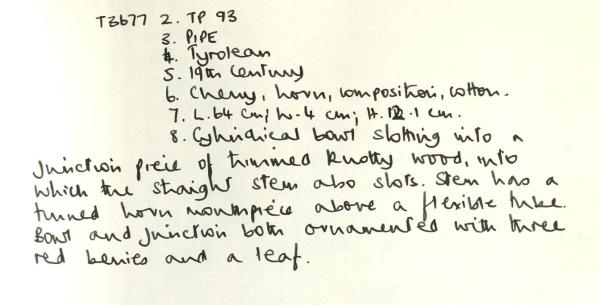 T3677 2. TP 93
3. PIPE
4. Tyrolean
5. 19th Century
6. Cherry, horn, composition, cotton.
7. L. 64 cm; W. 4 cm; H. 12.1 cm.
8. Cylindrical bowl slotting into a
junction piece of trimmed knotty wood, into
which the straight stem also slots. Stem has a
turned horn mouthpiece above a flexible tube.
Bowl and junction both ornamented with three
red berries and a leaf.